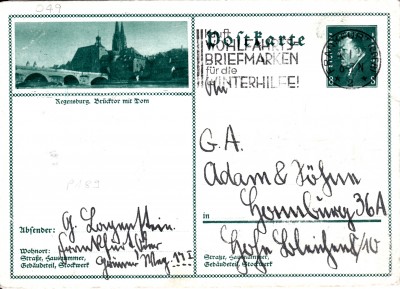 549
Regensburg. Brücktor mit Dom
Postkarte
Kauft
WOHLFAHRTS-
BRIEFMARKEN
für die
WINTERHILFE!
8 8
An
G. A.
Adam & Söhne
in Homburg 36 A
Hohe Bleichen 8/10
Straße, Hausnummer,
Gebäudeteil, Stockwerk
Absender: G.
Frankfurt
Wohnort:
Straße, Hausnummer,
Gebäudeteil, Stockwerk
Grüner Weg 17 I